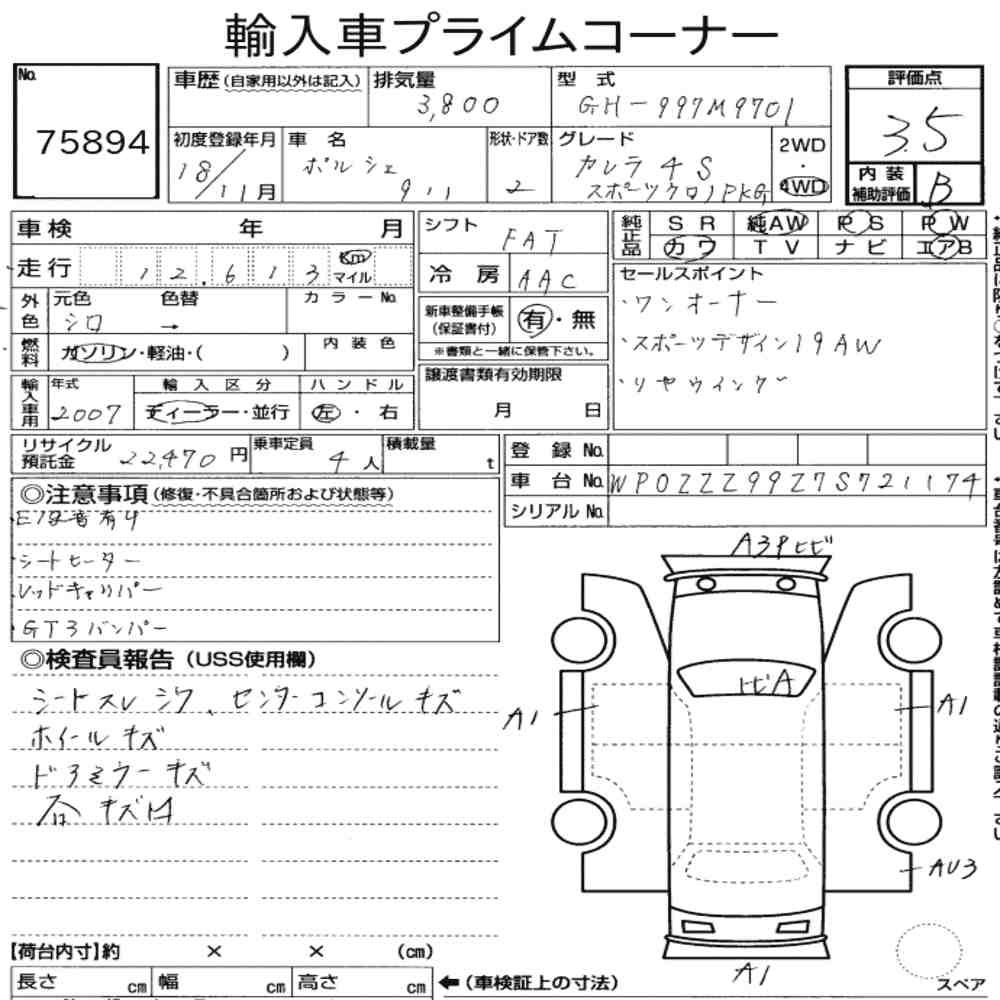 輸入車プライムコーナー
No.
75894
車歴(自家用以外は記入)
排気量
3,800
型 式
GH-997M9701
評価点
3.5
初度登録年月
18/11月
車 名
ポルシェ
911
形状・ドア数
2
グレード
カレラ4S
スポーツクロノPKG
2WD
・
4WD
内 装
補助評価
B
車検 年 月
シフト
FAT
純正品
SR 純AW PS PW
カワ TV ナビ エアB
走行
12.613
Km
マイル
冷 房
AAC
セールスポイント
・ワンオーナー
・スポーツデザイン19AW
・リヤウイング
外色
元色
シロ
色替
→
カラーNo.
新車整備手帳
(保証書付)
有・無
※書類と一緒に保管下さい。
燃料
ガソリン・軽油・( )
内 装 色
譲渡書類有効期限
月 日
輸入車用
年式
2007
輸 入 区 分
ディーラー・並行
ハ ン ド ル
左・右
リサイクル
預託金
22,470 円
乗車定員
4 人
積載量
t
登 録 No.
車 台 No. WP0ZZZ99Z7S721174
シリアル No.
◎注意事項(修復・不具合箇所および状態等)
・シートヒーター
・レッドキャリパー
・GT3バンパー
◎検査員報告(USS使用欄)
シートスレ シワ、センターコンソール キズ
ホイール キズ
ドアミラーキズ
A3Pヒビ
トビA
A1
A1
AU3
A1
【荷台内寸】約 × × (cm)
長さ cm 幅 cm 高さ cm
←(車検証上の寸法)
スペア